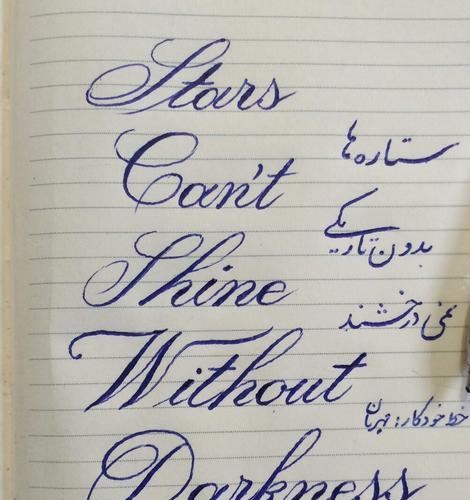 Stars
Can't
Shine
Without
Darkness
ستاره ها
بدون تاریکی
نمی درخشند
خط خودکار: مهربان